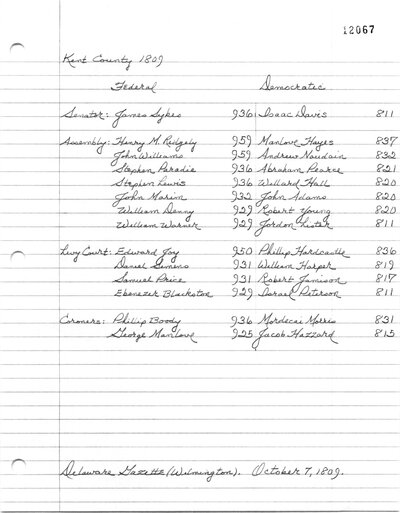 12067
Kent County 1809
Federal Democratic
Senator: James Sykes 936 Isaac Davis 811
Assembly: Henry M. Ridgely 959 Manlove Hayes 837
John Williams 959 Andrew Naudain 832
Stephen Paradie 936 Abraham Pearce 821
Stephen Lewis 936 Willard Hall 820
John Marim 932 John Adams 820
William Denny 929 Robert Young 820
William Warner 929 Jordon Lister 811
Levy Court: Edward Joy 950 Phillip Hardcastle 836
Daniel Simens 931 William Harper 819
Samuel Price 931 Robert Jamison 817
Ebenezer Blackston 929 Israel Peterson 811
Coroners: Phillip Boody 936 Mordecai Morris 831
George Manlove 925 Jacob Hazzard 815
Delaware Gazette (Wilmington). October 7, 1809.